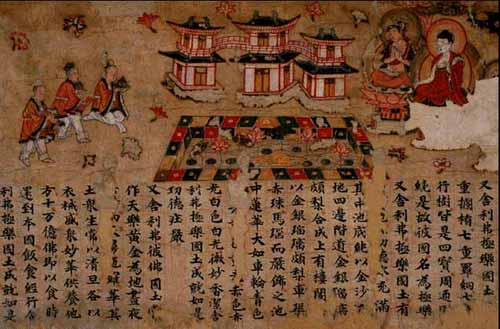 又舍利弗極樂國土七
重攔楯七重羅網七
行樹皆是四寶周迊
繞是故彼國名為極樂
又舍利弗極樂國土有
充滿
其中池底純以金沙布
地四邊階道金銀瑠璃
頗梨合成上有樓閣
以金銀瑠璃頗梨車璖
赤珠馬瑙而嚴飾之池
中蓮華大如車輪青色
赤色赤
光白色白光微妙香潔舍
利弗極樂國土成就如是
功德莊嚴
又舍利弗彼佛國土常
作天樂黃金為地晝夜
華其
土眾生常以清旦各以
衣裓盛眾妙華供養他
方十万億佛即以食時
還到本國飯食經行舍
利弗極樂國土成就如是